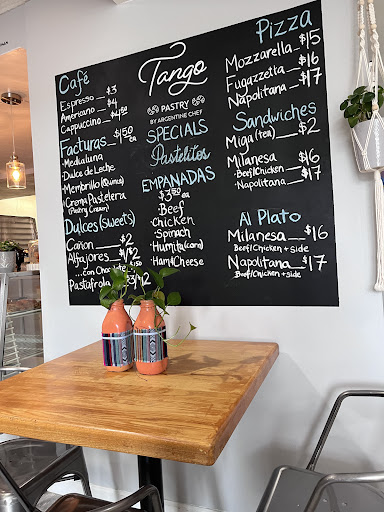 Café
Espresso $3
Americano $4
Cappuccino $4.50
Facturas $1.50 ea
·Medialuna
·Dulce de Leche
·Membrillo (Quince)
·Crema Pastelera
(Pastry Cream)
Dulces (sweets)
Cañon $2
Alfajores $1/$2
...con Chocolate
Pastafrola $3/$12
Tango
PASTRY
BY ARGENTINE CHEF
SPECIALS
Pastelitos
EMPANADAS
$3.50 ea
·Beef
·Chicken
·Spinach
·Humita (corn)
·Ham & Cheese
Pizza
Mozzarella $15
Fugazzetta $16
Napolitana $17
Sandwiches
Miga (tea) $2
Milanesa $16
·Beef/Chicken
·Napolitana $17
Al Plato
Milanesa $16
Beef/Chicken + side
Napolitana $17
Beef/Chicken + side